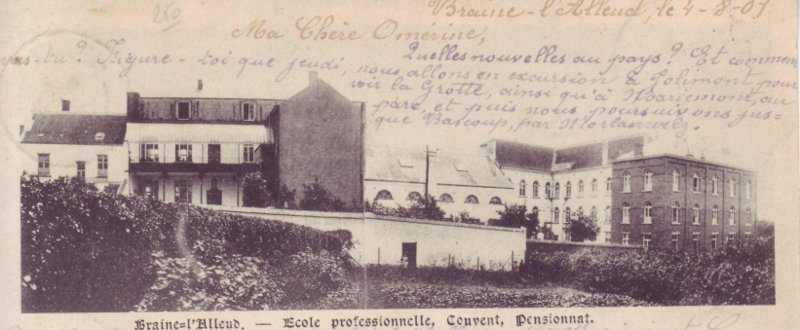 250
Braine-l'Alleud, le 4-8-07
Ma Chère Omérine,
Quelles nouvelles au pays? Et comment
vas-tu? Figure-toi que jeudi, nous allons en excursion à Jolimont pour
voir la Grotte, ainsi qu'à Mariemont, au
parc, et puis nous poursuivons jus=
que Bascoup, par Morlanwelz.
Braine=l'Alleud. — Ecole professionnelle, Couvent, Pensionnat.